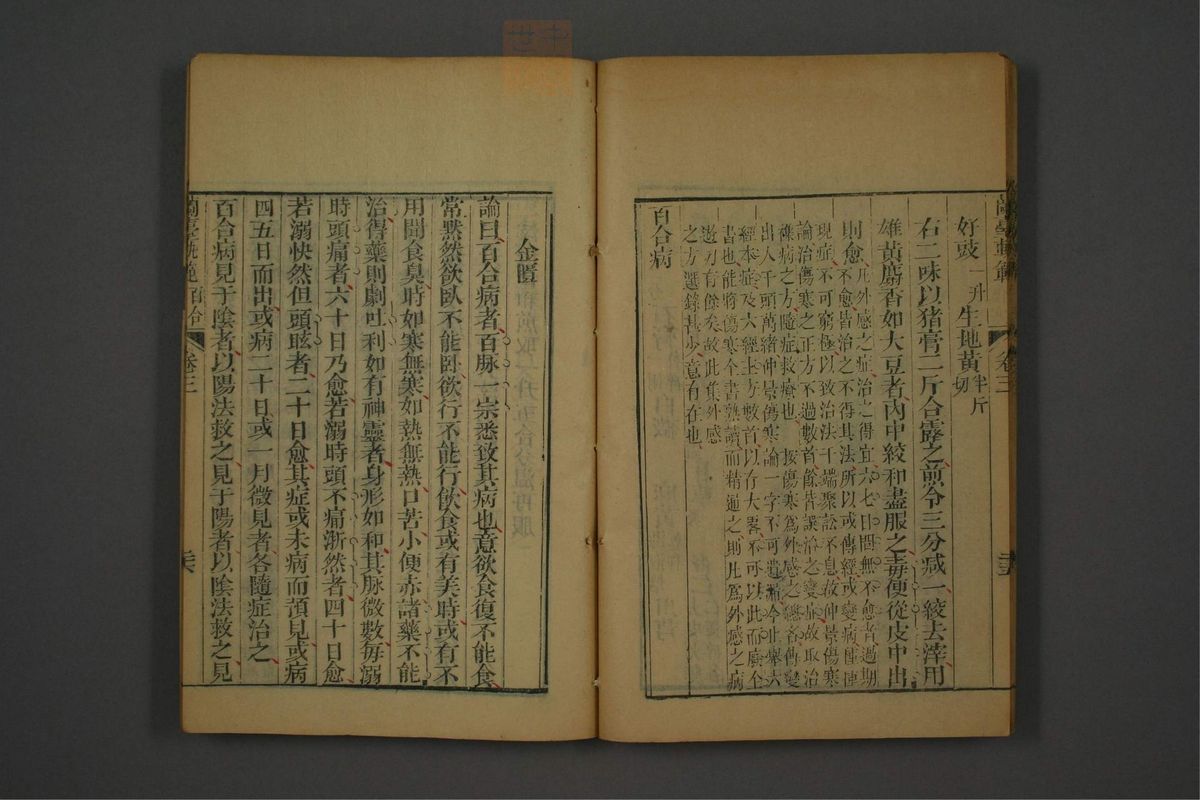 蘭臺軌範
卷三
好豉一升生地黃半斤切
右二味以猪膏二斤合露之煎令三分减一絞去滓用
雄黃麝香如大豆者內中絞和盡服之毒便從皮中出
則愈
凡外感之症治之得宜六七日間無不愈者過期
不愈皆治之不得其法所以或傳經或變病種種
現症不可窮極以致治法千端聚訟不息故仲景傷寒
論治傷寒之正方不過數首餘皆誤治之變症故取治
襍病之方隨症救療也 按傷寒爲外感之總名傳變
出入千頭萬緒仲景傷寒論一字不可遺漏今止舉六
經本症及六經主方數首以存大畧不可以此而廢全
書也能將傷寒全書熟讀而精通之則凡爲外感之病
遊刃有餘矣故此集外感
之方選錄甚少意有在也
百合病
金匱
論曰百合病者百脉一宗悉致其病也意欲食復不能食
常黙然欲臥不能卧欲行不能行飲食或有美時或有不
用聞食臭時如寒無寒如熱無熱口苦小便赤諸藥不能
治得藥則劇吐利如有神靈者身形如和其脉微數每溺
時頭痛者六十日乃愈若溺時頭不痛淅然者四十日愈
若溺快然但頭眩者二十日愈其症或未病而預見或病
四五日而出或病二十日或一月微見者各隨症治之
百合病見于陰者以陽法救之見于陽者以陰法救之見
蘭臺軌範百合
卷三